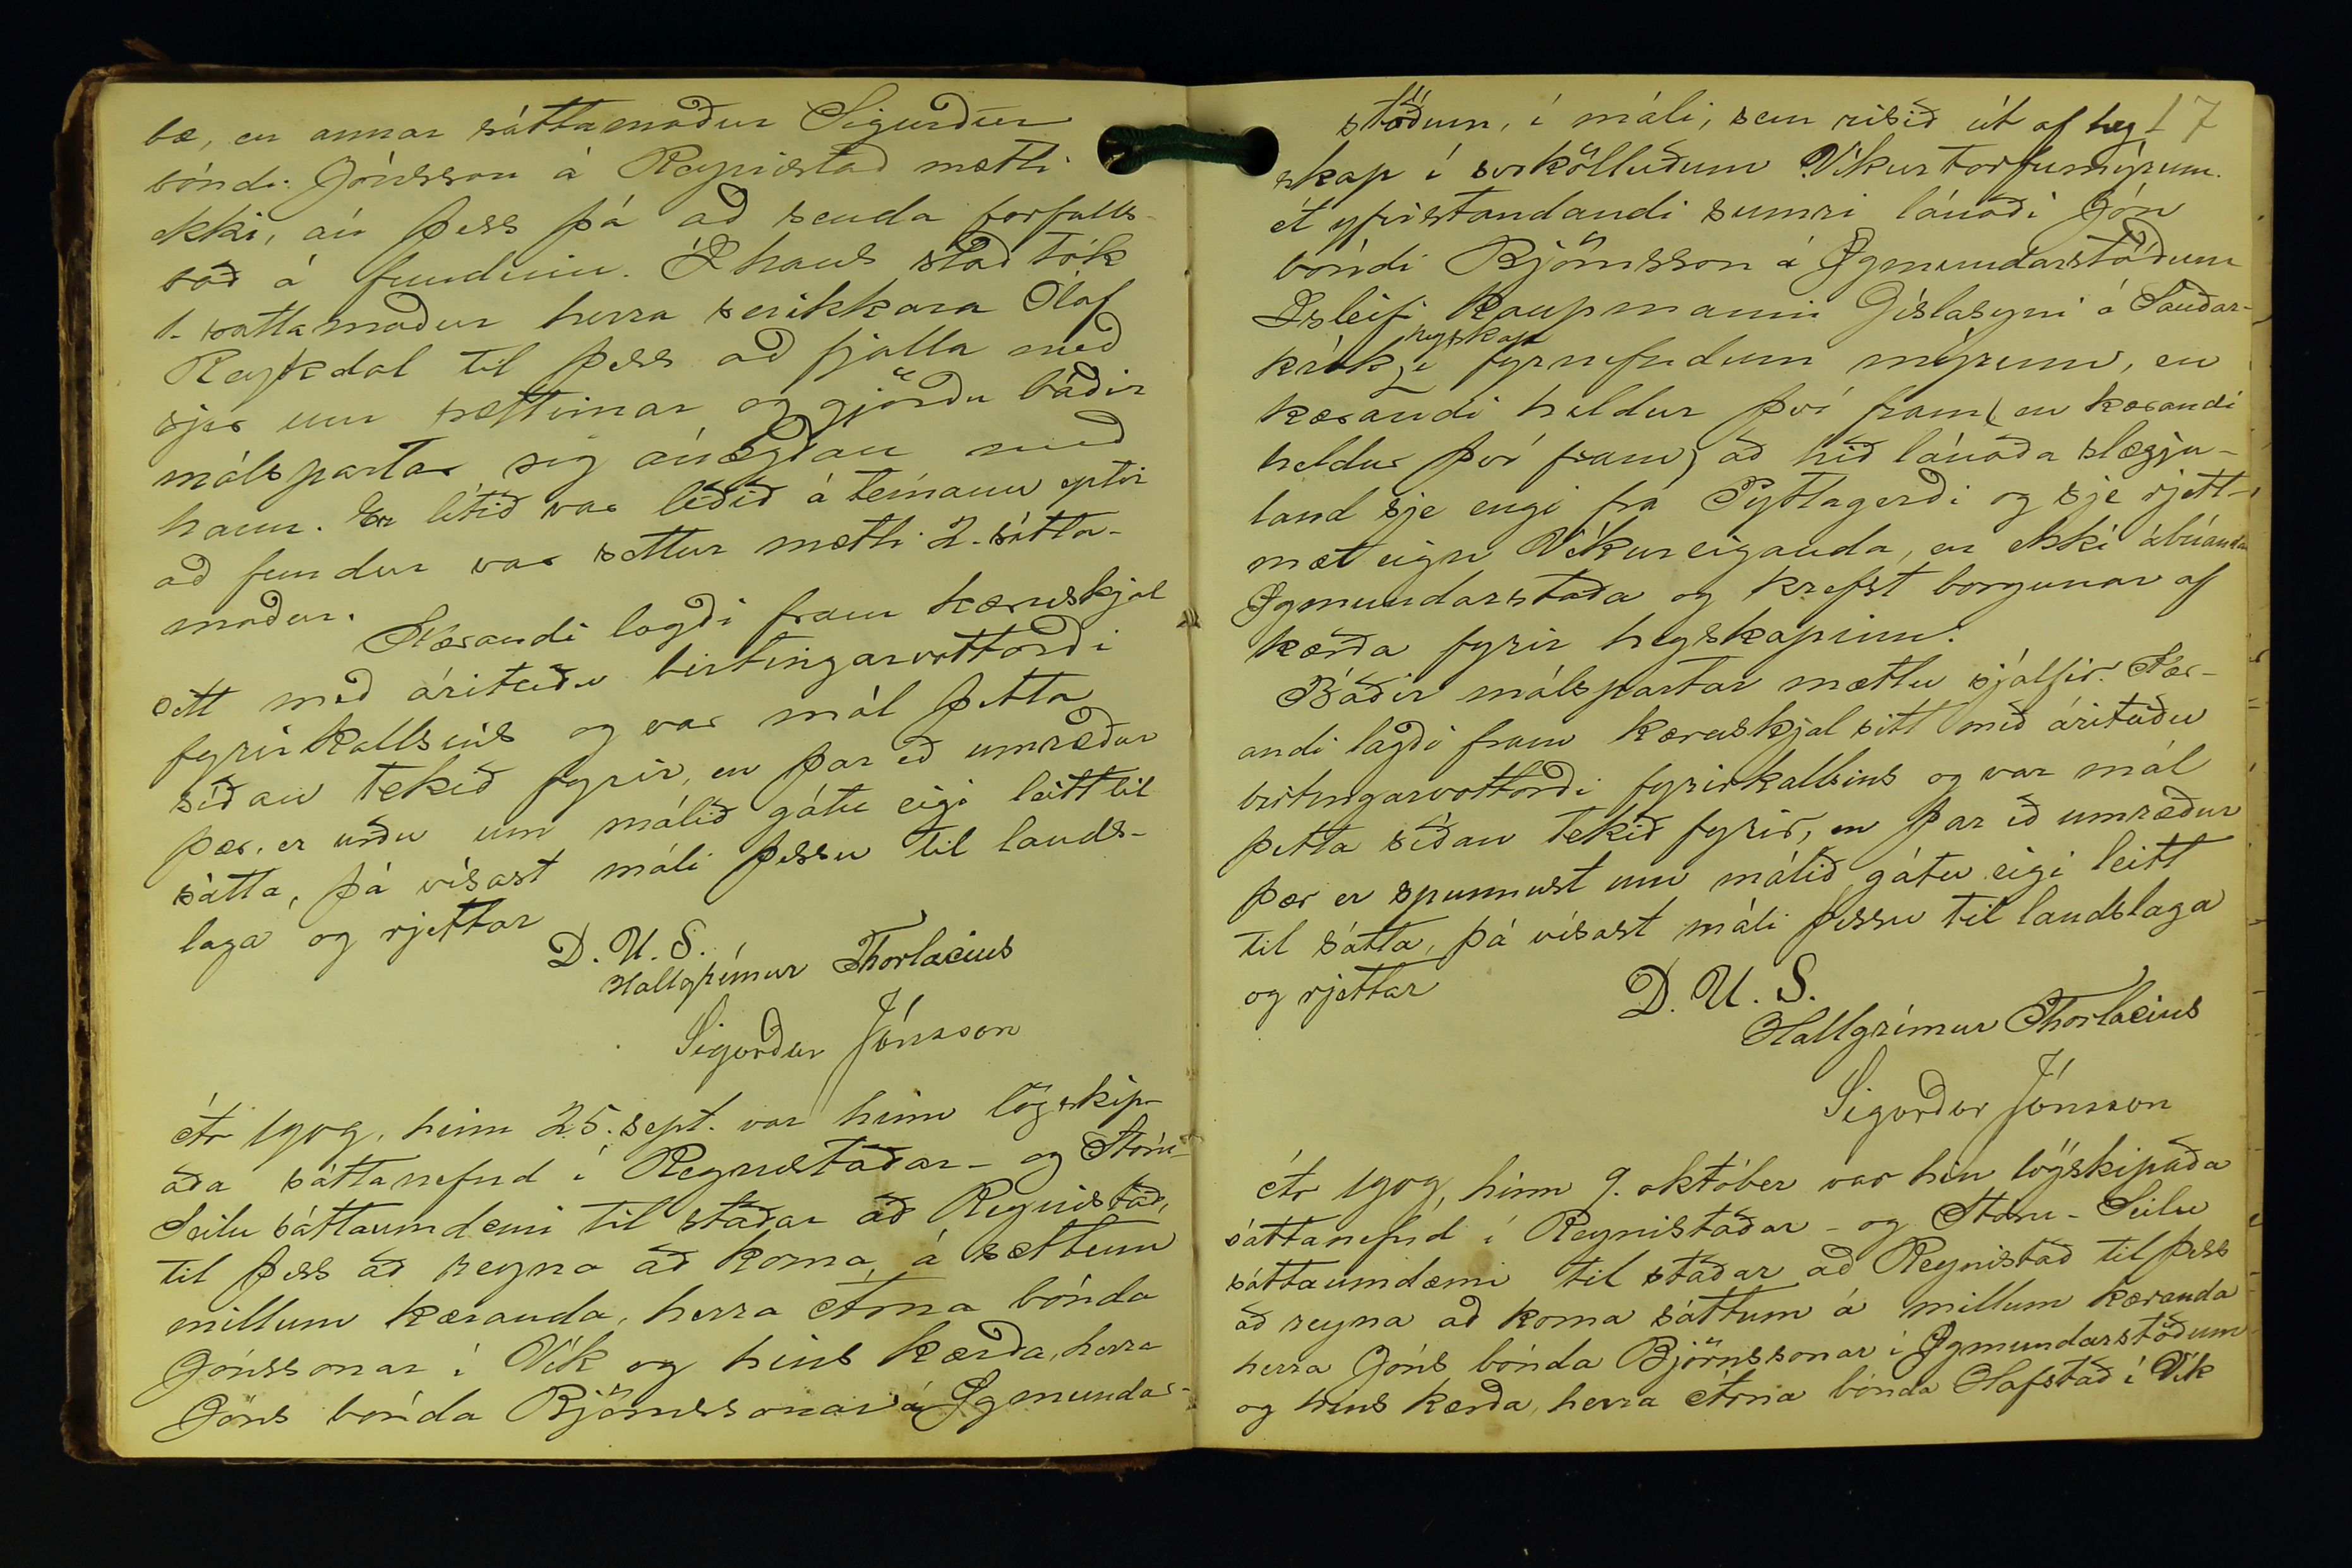 bæ, en annar sáttamaður Sigurður
bóndi Jónsson á Reynistað mætti
ekki, án þess þá að senda forfalls-
boð á fundinn. Í hans stað tók
1. sáttamaður herra serikkara Ólaf
Reykdal til þess að fjalla með
sjer um sættirnar og gjörðu báðir
málspartar sig ánægðan með
hann. En lítið var liðið á tímann eptir
að fundur var settur mætti 2. sátta-
maður.
Kærandi lagði fram kæruskjal
sitt með árituðu birtingarvottorði
fyrirkallsins og var mál þetta
síðan tekið fyrir, en þar eð umræður
þær, er urðu um málið gátu eigi leitt til
sátta, þá vísast máli þessu til lands-
laga og rjettar
D. U. S.
Hallgrímur Thorlacius
Sigurður Jónsson
Ár 1909, hinn 25. sept. var hinn lögskip-
aða sáttanefnd í Reynistaðar- og Stóru-
Seilu sáttaumdæmi til staðar að Reynistað,
til þess að reyna að koma á sættum
millum kæranda, herra Árna bónda
Jónssonar í Vík og hins kærða, herra
Jóns bónda Björnssonar á Ögmundar-
17
stöðum, í máli, sem risið út af hey-
skap í svokölluðum Víkurtorfumýrum.
Á yfirstandandi sumri lánaði Jón
bóndi Björnsson á Ögmundarstöðum
Ísleifi kaupmanni Gíslasyni á Sauðár-
heyskap
krók, í fyrnefndum mýrum, en
kærandi heldur því fram (en kærandi
heldur því fram) að hið lánaða slægju-
land sje engi frá Pyttagerði og sje rjett-
mæt eign Víkureiganda, en ekki ábúanda
Ögmundarstaða og krefst borgunar af
kærða fyrir heyskapinn.
Báðir málspartar mættu sjálfir. Kær-
andi lagði fram kæruskjal sitt með árituðu
birtingarvottorði fyrirkallsins og var mál
þetta síðan tekið fyrir, en þar eð umræður
þær er spunnust um málið gátu eigi leitt
til sátta, þá vísast máli þessu til landslaga
og rjettar
D. U. S.
Hallgrímur Thorlacius
Sigurður Jónsson
Ár 1909, hinn 9. október var hin lögskipaða
sáttanefnd í Reynistaðar- og Stóru-Seilu
sáttaumdæmi til staðar að Reynistað til þess
að reyna að koma sáttum á millum kæranda
herra Jóns bónda Björnssonar í Ögmundarstöðum
og hins kærða, herra Árna bónda Hafstað í Vík